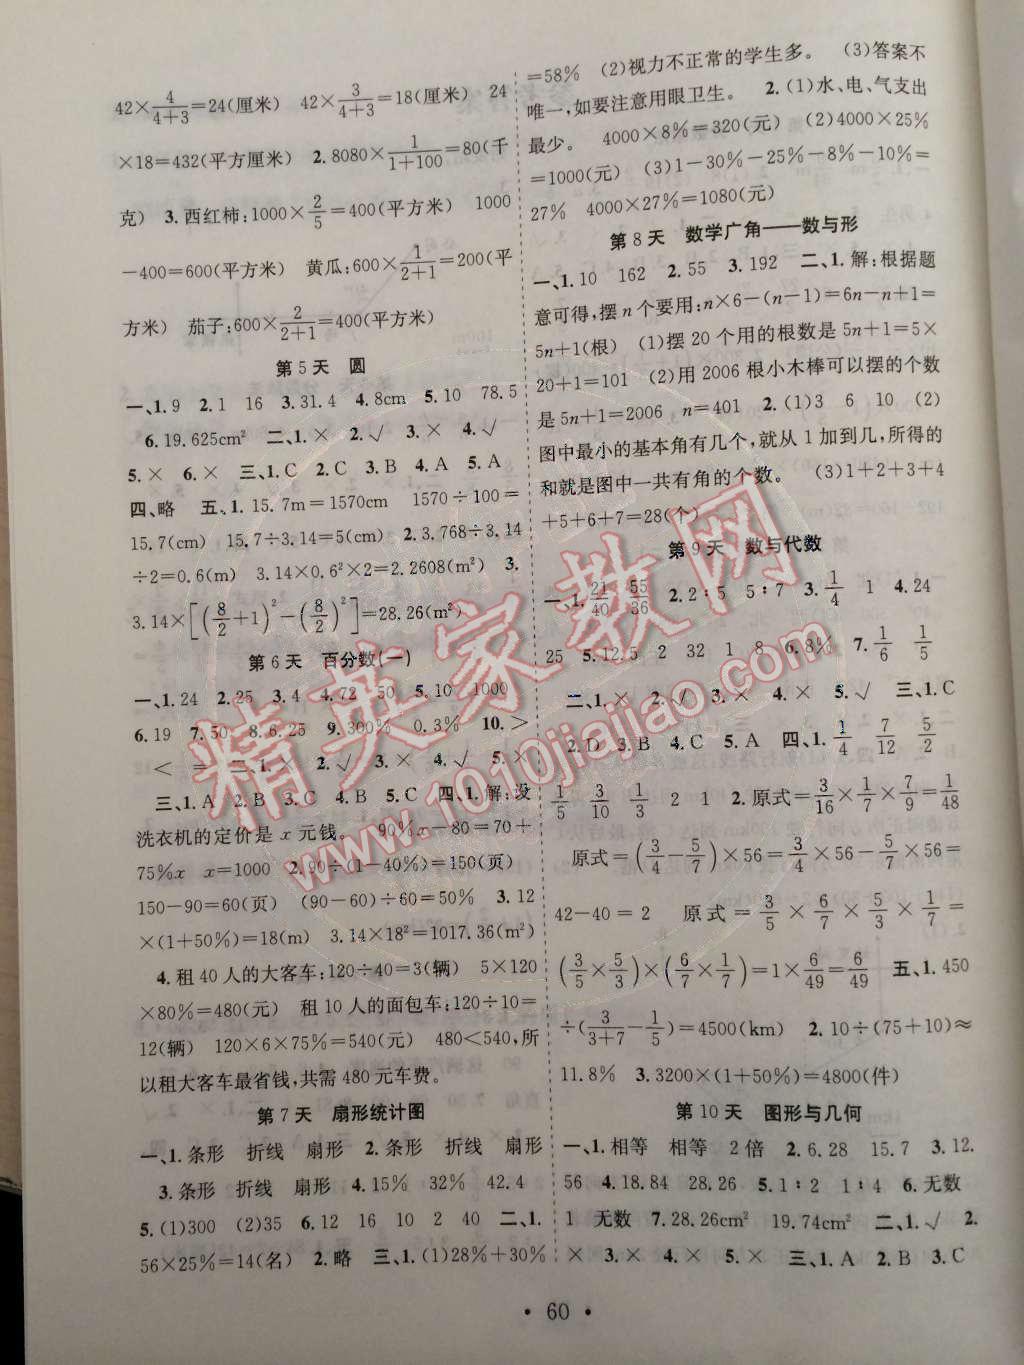 42×4/(4+3)=24(厘米) 42×3/(4+3)=18(厘米) 24
×18=432(平方厘米) 2. 8080×1/(1+100)=80(千
克) 3. 西红柿:1000×2/5=400(平方米) 1000
-400=600(平方米) 黄瓜:600×1/(2+1)=200(平
方米) 茄子:600×2/(2+1)=400(平方米)
第5天 圆
一、1. 9 2. 1 16 3. 31.4 4. 8cm 5. 10 78.5
6. 19.625cm² 二、1. × 2. √ 3. × 4. √
5. × 6. × 三、1. C 2. C 3. B 4. A 5. A
四、略 五、1. 15.7m=1570cm 1570÷100=
15.7(cm) 15.7÷3.14=5(cm) 2. 3.768÷3.14
÷2=0.6(m) 3.14×0.6²×2=2.2608(m²) 3.
3.14×[(8/2+1)²-(8/2)²]=28.26(m²)
第6天 百分数(一)
一、1. 24 2. 25 3. 4 4. 72 50 5. 10 1000
6. 19 7. 50 8. 6.25 9. 300% 0.3% 10. >
< = 二、1. × 2. √ 3. × 4. √ 5. ×
三、1. A 2. B 3. C 4. B 5. C 四、1. 解:设
洗衣机的定价是 x 元钱。 90%x-80=70+
75%x x=1000 2. 90÷(1-40%)=150(页)
150-90=60(页) (90-60)÷60=50% 3. 12
×(1+50%)=18(m) 3.14×18²=1017.36(m²)
4. 租 40 人的大客车:120÷40=3(辆) 5×120
×80%=480(元) 租 10 人的面包车:120÷10=
12(辆) 120×6×75%=540(元) 480<540,所
以租大客车最省钱,共需 480 元车费。
第7天 扇形统计图
一、1. 条形 折线 扇形 2. 条形 折线 扇形
3. 条形 折线 扇形 4. 15% 32% 42.4
5. (1)300 (2)35 6. 12 16 10 2 40 二、1.
56×25%=14(名) 2. 略 三、1. (1)28%+30%
=58% (2)视力不正常的学生多。 (3)答案不
唯一,如要注意用眼卫生。 2. (1)水、电、气支出
最少。 4000×8%=320(元) (2)4000×25%
=1000(元) (3)1-30%-25%-8%-10%=
27% 4000×27%=1080(元)
第8天 数学广角——数与形
一、1. 10 162 2. 55 3. 192 二、1. 解:根据题
意可得,摆 n 个要用:n×6-(n-1)=6n-n+1=
5n+1(根) (1)摆 20 个用的根数是 5n+1=5×
20+1=101 (2)用 2006 根小木棒可以摆的个数
是 5n+1=2006 n=401 2. (1)3 6 10 (2)
图中最小的基本角有几个,就从 1 加到几,所得的
和就是图中一共有角的个数。 (3)1+2+3+4
+5+6+7=28(个)
第9天 数与代数
一、1. 21/40 55/36 2. 2∶5 5∶7 3. 1/4 1 4. 24
25 5. 12.5 2 32 1 8 6. 8% 7. 1/6 1/5
二、1. × 2. √ 3. × 4. × 5. √ 三、1. C
2. D 3. B 4. C 5. A 四、1. 1/4 7/12 5/2
1/5 3/10 1/3 2 1 2. 原式=3/16×1/7×7/9=1/48
原式=(3/4-5/7)×56=3/4×56-5/7×56=
42-40=2 原式=3/5×6/7×5/3×1/7=
(3/5×5/3)×(6/7×1/7)=1×6/49=6/49 五、1. 450
÷(3/(3+7)-1/5)=4500(km) 2. 10÷(75+10)≈
11.8% 3. 3200×(1+50%)=4800(件)
第10天 图形与几何
一、1. 相等 相等 2倍 2. 6.28 15.7 3. 12.
56 4. 18.84 28.26 5. 1∶2 1∶4 6. 无数
1 无数 7. 28.26cm² 19.74cm² 二、1. √ 2.
× 3. × 4. × 5. × 三、1. A 2. B 3. C
• 60 •
精英家教网
www.1010jiajiao.com